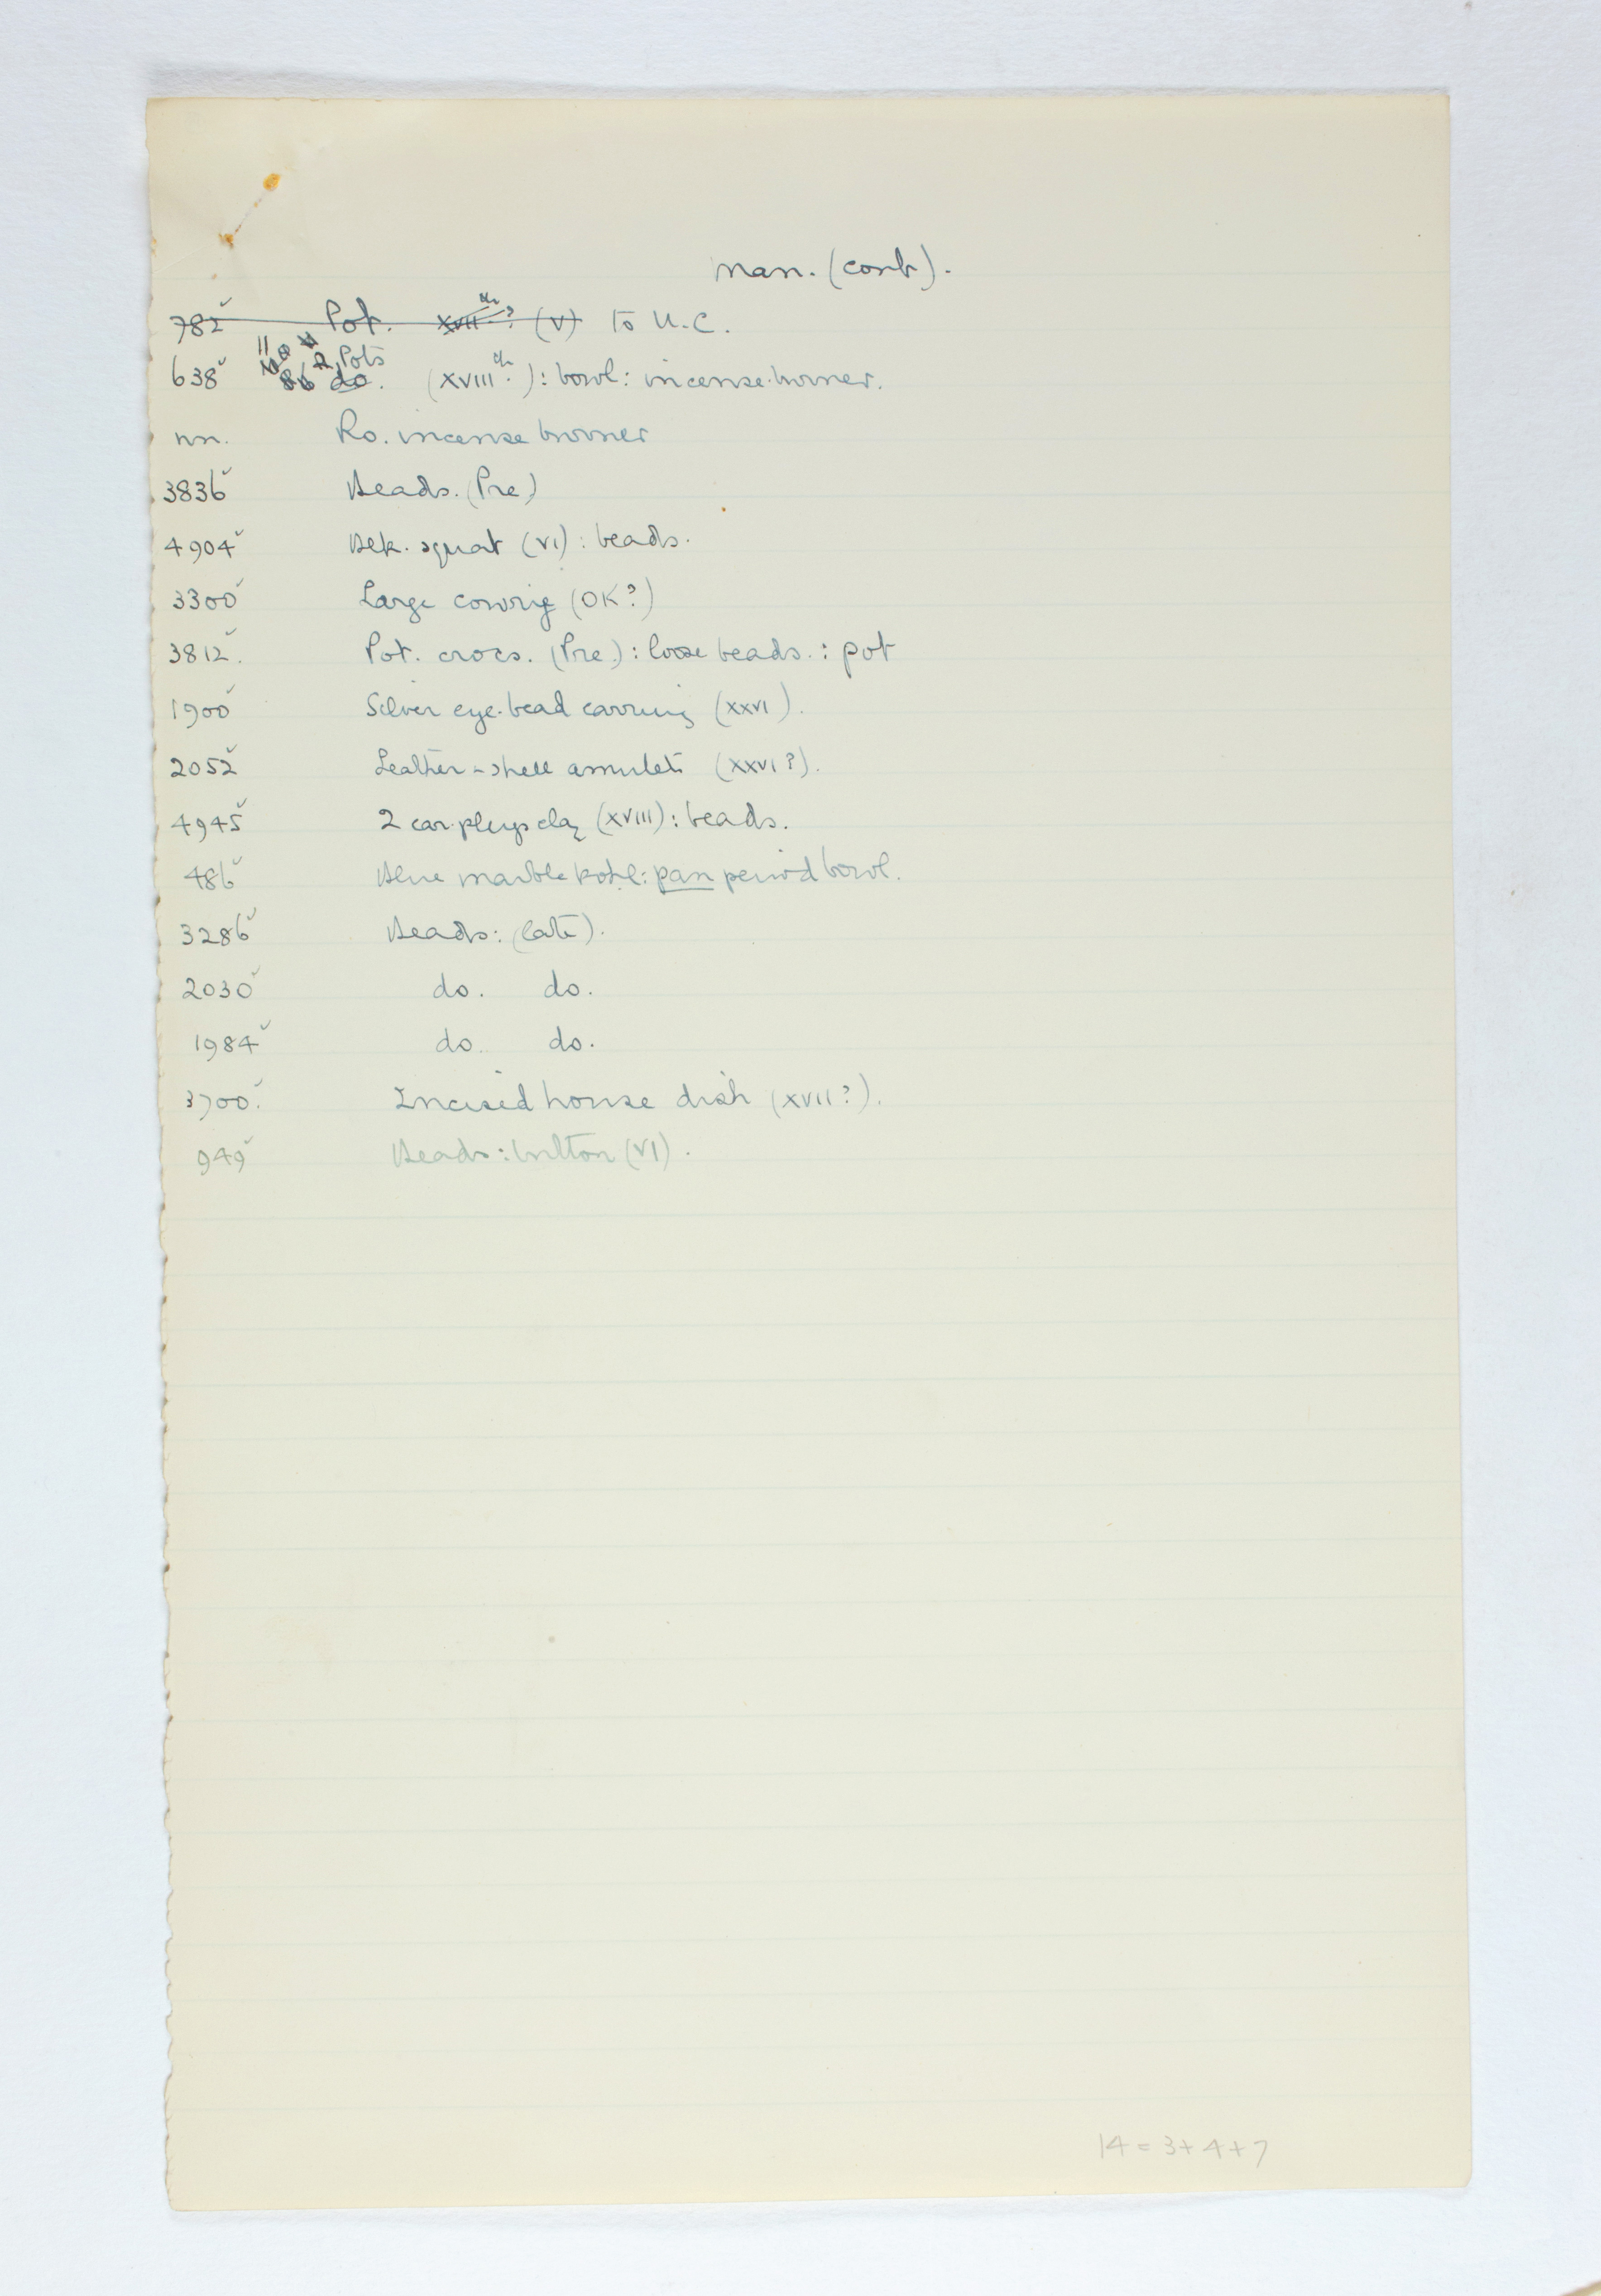 Man. (cont).
782 Pot. XVIIth? (V) to U.C.
2 Pots
638 86 do. (XVIIIth.): bowl: incense burner.
nn. Ro. incense burner
3836 Beads. (Pre)
4904 Blk. squat (VI): beads.
3300 Large cowrie (OK?)
3812. Pot. crocs. (Pre.): loose beads.: pot
1900 Silver eye-bead earring (XXVI).
2052 Leather - shell amulets (XXVI?).
4945 2 ear-plugs clay (XVIII): beads.
486 Blue marble kohl: pan period bowl.
3286 Beads: (late).
2030 do. do.
1984 do. do.
3700. Incised house dish (XVII?).
949 Beads: button (VI).
14 = 3+4+7